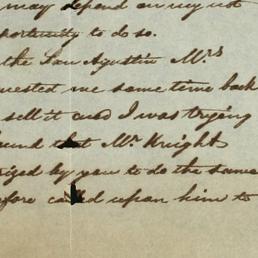 may depend on my not
pportunity to do so.
the San Agustin Mrs
uested me some time back
sell it and I was trying
ound that Mr Knight
rized by you to do the same
efore called upon him to